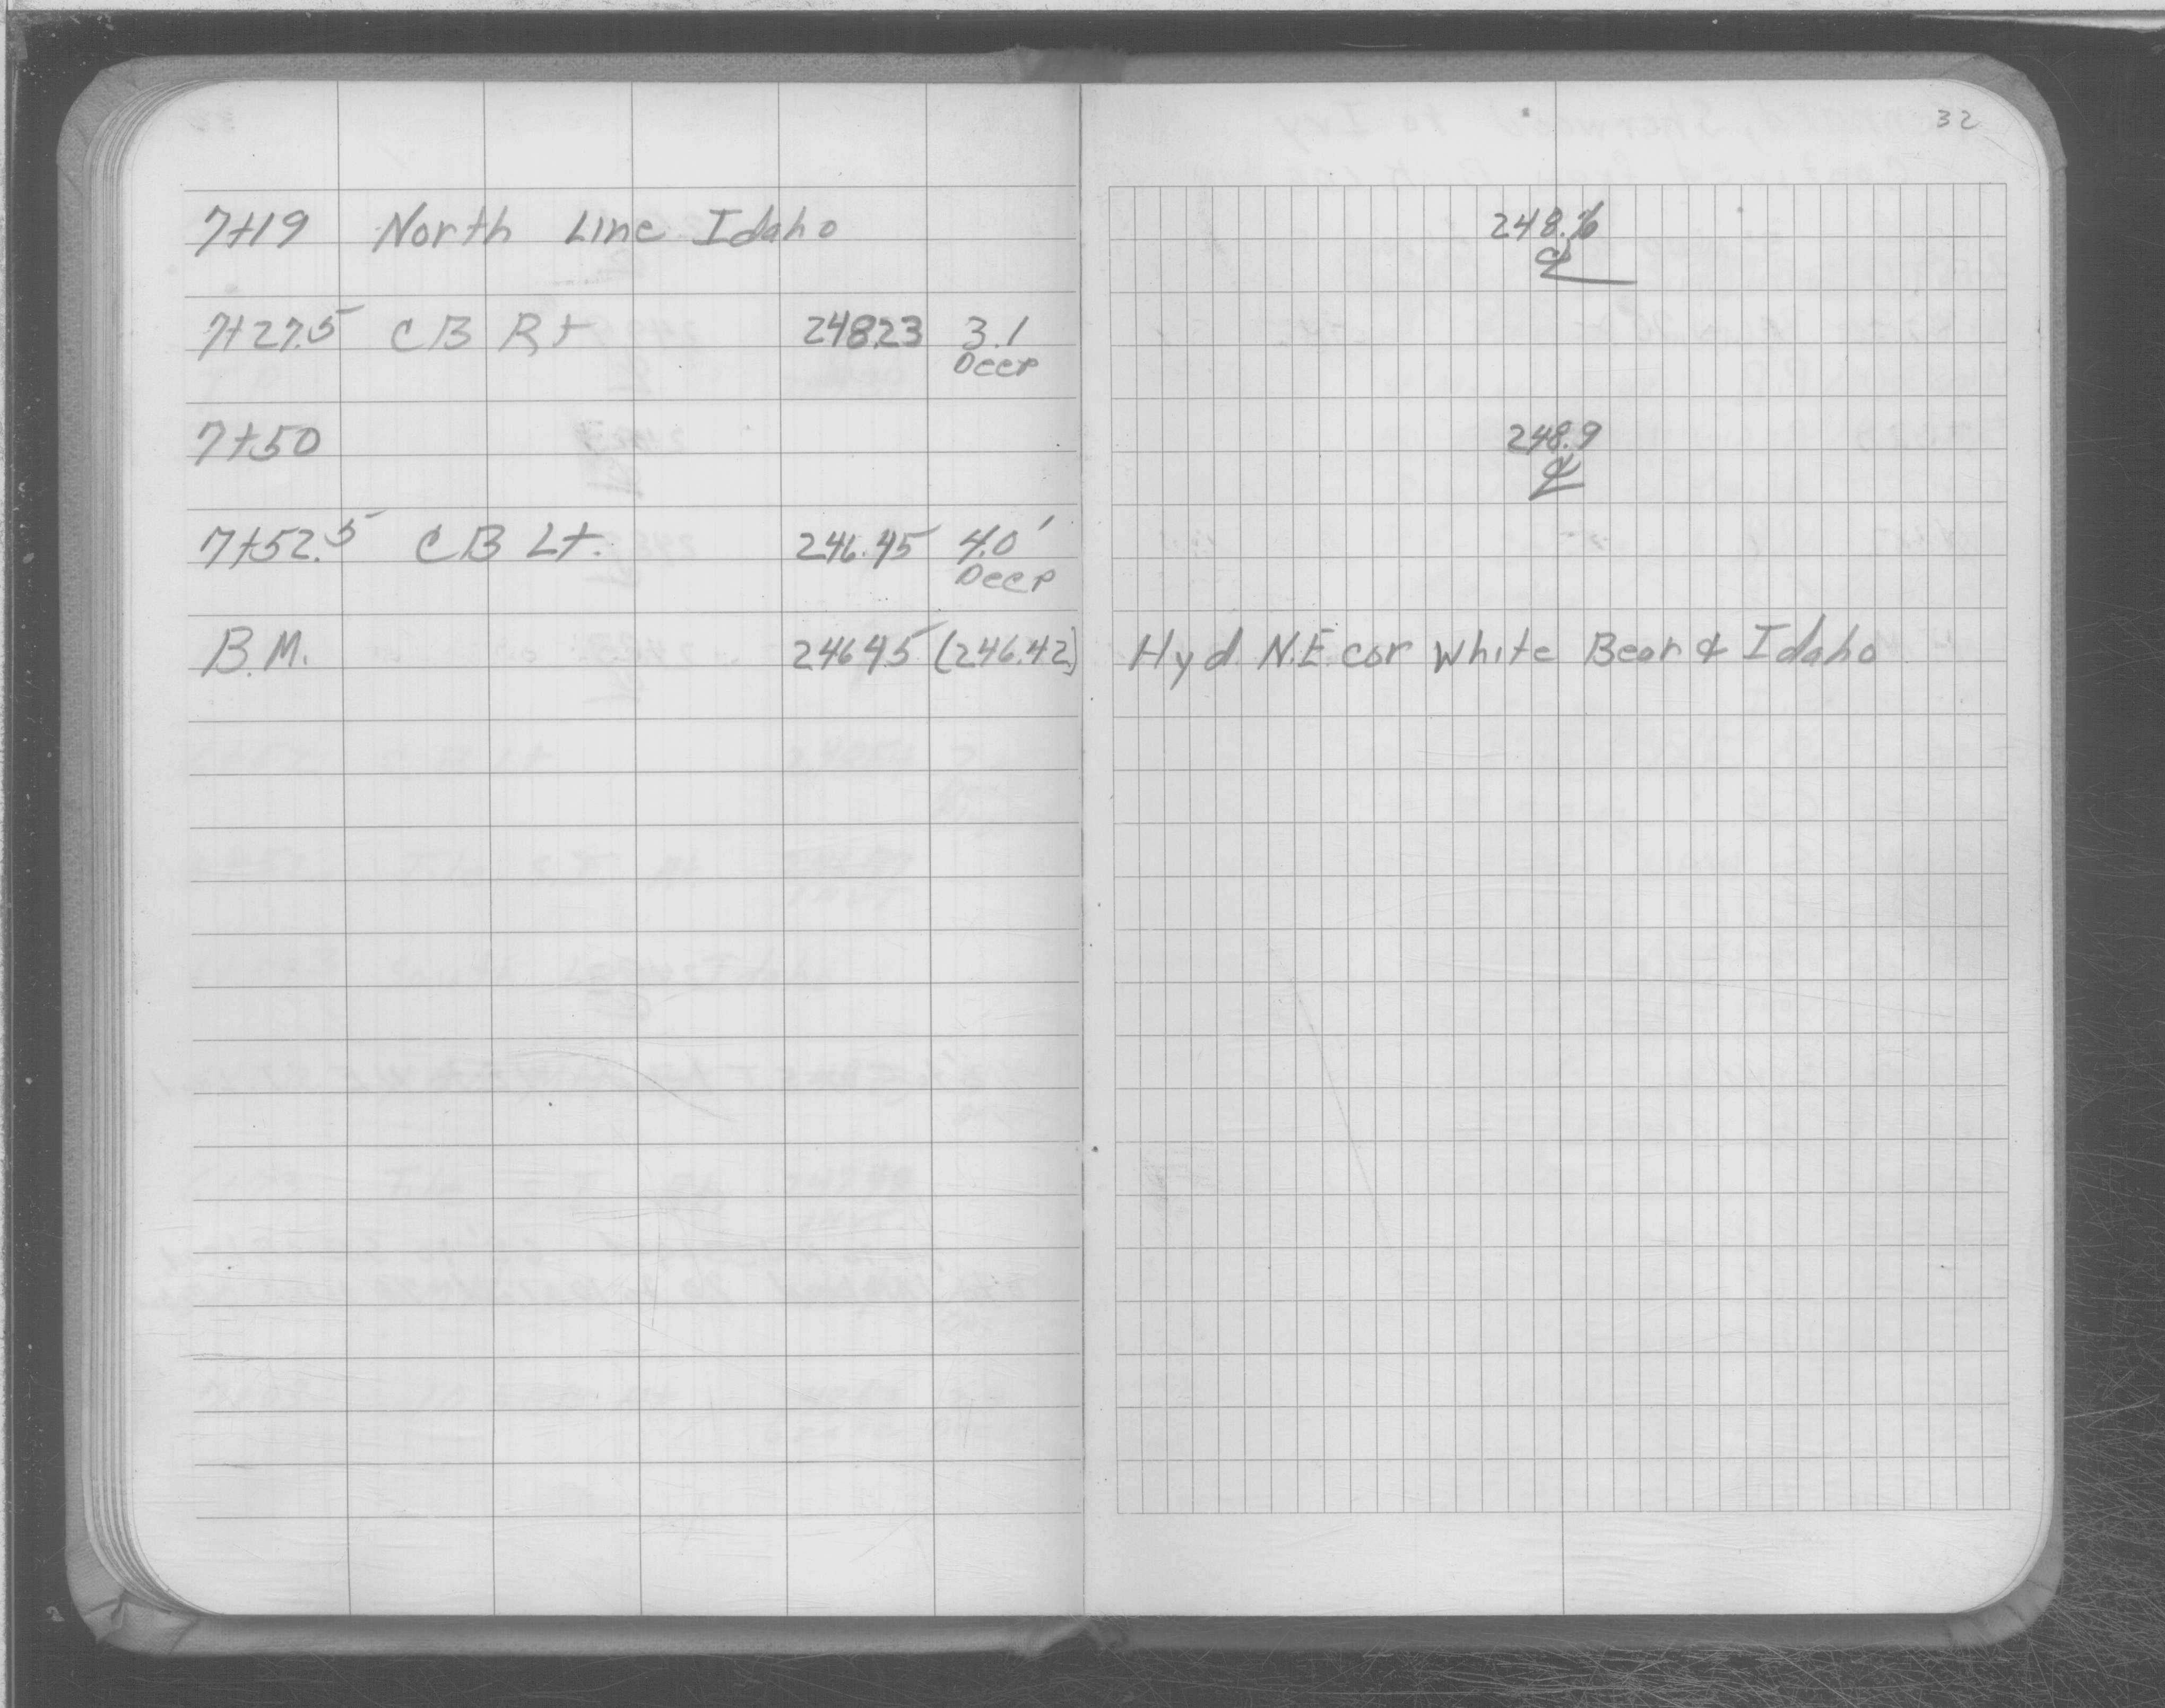 32
7+19 North Line Idaho 248.76
℄
7+27.5 CB Rt 248.23 3.1
Deep
7+50 248.9
℄
7+52.5 CB Lt. 246.45 4.0'
Deep
B.M. 246.45 (246.42) Hyd. N.E. cor White Bear & Idaho